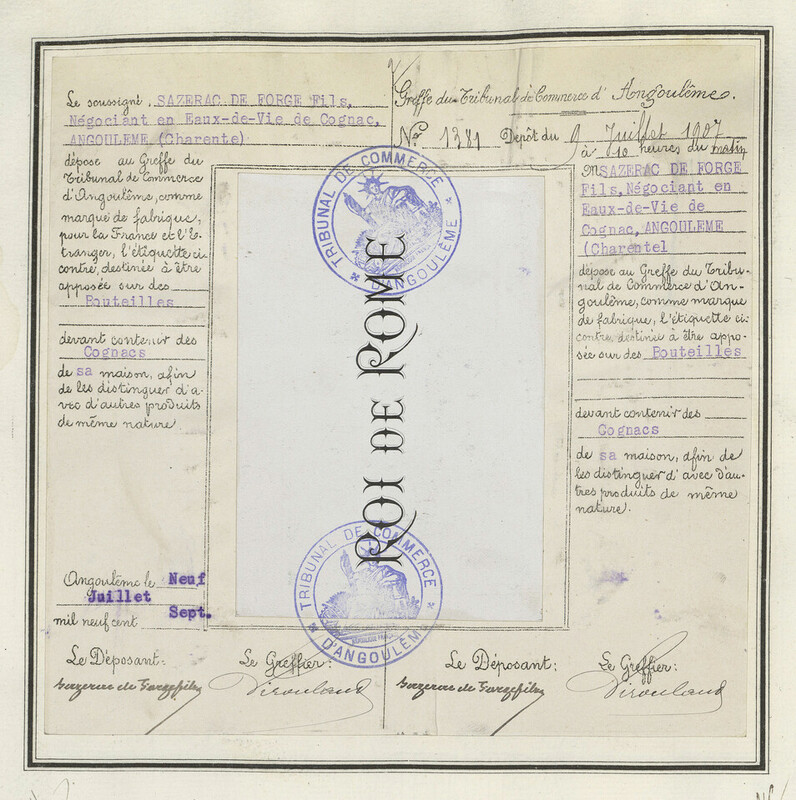 Le soussigné, SAZERAC DE FORGE Fils,
Négociant en Eaux-de-Vie de Cognac,
ANGOULEME (Charente)
dépose au Greffe du
Tribunal de Commerce
d'Angoulême, comme
marque de fabrique,
pour la France et l'É-
tranger, l'étiquette ci-
contre, destinée à être
apposée sur des
Bouteilles
devant contenir des
Cognacs
de sa maison, afin
de les distinguer d'a-
vec d'autres produits
de même nature
Angoulême le Neuf
Juillet
mil neuf cent Sept.
Le Déposant:
Sazerac de Forge fils
Le Greffier:
TRIBUNAL DE COMMERCE
D'ANGOULÊME
ROI DE ROME
TRIBUNAL DE COMMERCE
D'ANGOULÊME
Greffe du Tribunal de Commerce d'Angoulême.
No 1381 Depôt du 9 Juillet 1907
à 10 heures du matin
M SAZERAC DE FORGE
Fils, Négociant en
Eaux-de-Vie de
Cognac, ANGOULEME
(Charentel
dépose au Greffe du Tribu-
nal de Commerce d'An-
goulême, comme marque
de fabrique, l'étiquette ci-
contre, destinée à être appo-
sée sur des Bouteilles
devant contenir des
Cognacs
de sa maison, afin de
les distinguer d'avec d'au-
tres produits de même
nature.
Le Déposant:
Sazerac de Forge fils
Le Greffier: